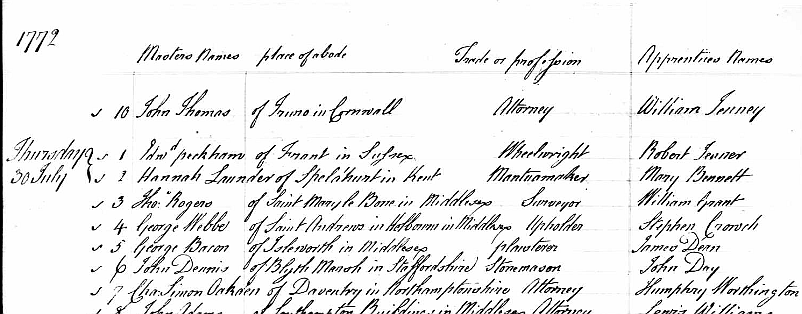 1772
Masters Names place of abode Trade or profession Apprentices Names
s 10 John Thomas of Truro in Cornwall Attorney William Jenney
Thursday s 1 Edwd peckham of Frant in Sussex Wheelwright Robert Jenner
30 July s 2 Hannah Launder of Spelshurst in Kent Mantuamaker Mary Bennett
s 3 Thos Rogers of Saint Maryle Bone in Middlesex Surveyor William Grant
s 4 George Webbe of Saint Andrews in Holborne in Middlesex Upholder Stephen Crouch
s 5 George Bacon of Isleworth in Middlesex plaisterer James Dern
s 6 John Dennis of Blyth Marsh in Staffordshire Stonemason John Day
s 7 Cha. Simon Oakden of Daventry in Northamptonshire Attorney Humphry Worthington
s 8 John of Southampton Buildings in Middlesex Attorney Lewis Williams